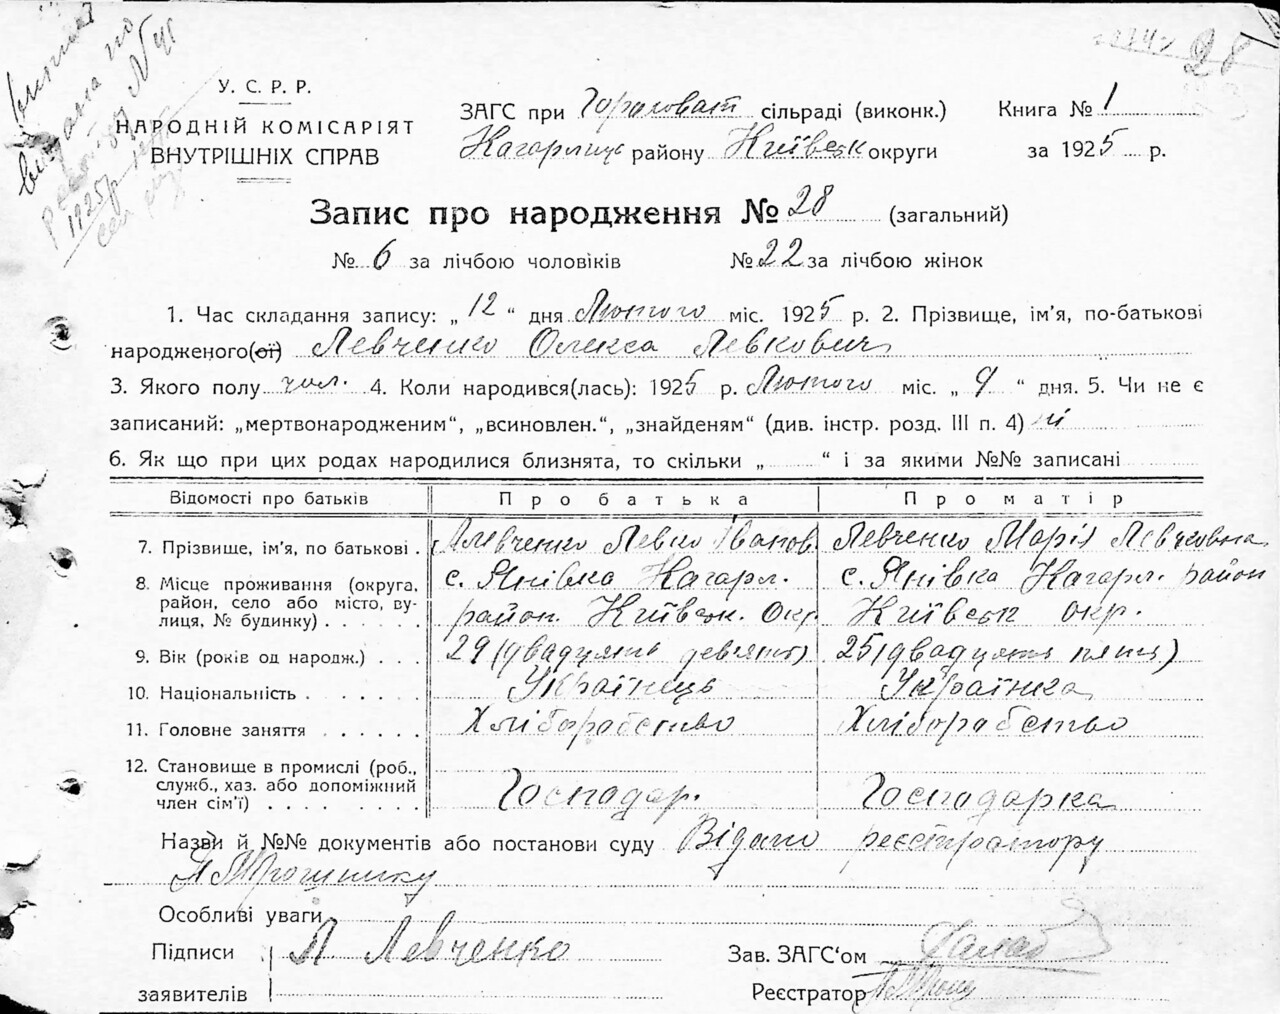 витяг
видана по
№ 41
1925 р.
28
У. С. Р. Р.
НАРОДНІЙ КОМІСАРІЯТ
ВНУТРІШНІХ СПРАВ
ЗАГС при Гороховат сільраді (виконк.)
Кагарлиць району Київськ округи
Книга № 1
за 1925 р.
Запис про народження № 28 (загальний)
№ 6 за лічбою чоловіків № 22 за лічбою жінок
1. Час складання запису: „ 12 “ дня Лютого міс. 1925 р. 2. Прізвище, ім'я, по-батькові
народженого(ої) Левченко Олекса Левкович
3. Якого полу чол. 4. Коли народився(лась): 1925 р. Лютого міс. „ 9 “ дня. 5. Чи не є
записаний: „мертвонародженим“, „всиновлен.“, „знайденям“ (див. інстр. розд. III п. 4) ні
6. Як що при цих родах народилися близнята, то скільки „ “ і за якими №№ записані
Відомості про батьків Про батька Про матір
7. Прізвище, ім'я, по батькові . Левченко Левко Іванов. Левченко Марія Левковна
8. Місце проживання (округа, район, село або місто, вулиця, № будинку) с. Янівка Кагарл. с. Янівка Кагарл. район
район. Київськ. Окр. Київськ окр.
9. Вік (років од народж.) . . . 29 (двадцять девять) 25 (двадцять пять)
10. Національність Українець Українка
11. Головне заняття Хліборобство Хліборобство
12. Становище в промислі (роб., служб., хаз. або допоміжний член сім'ї) Господар. Господарка
Назви й №№ документів або постанови суду Відано реєстратору
П Трошнику
Особливі уваги
Підписи Л Левченко Зав. ЗАГС‘ом
заявителів Реєстратор